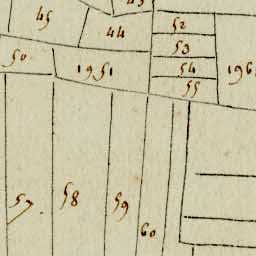 45
43
44
52
53
50
1951
54
196
55
57
58
59
60